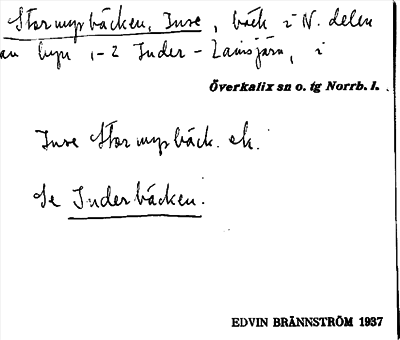 Stormyrbäcken, Inre, bäck i N. delen
av byn 1-2 Inder-Lansjärn, i
Överkalix sn o. tg Norrb. l.
Inre Stormyrbäck. ek.
Se Inderbäcken.
EDVIN BRÄNNSTRÖM 1937